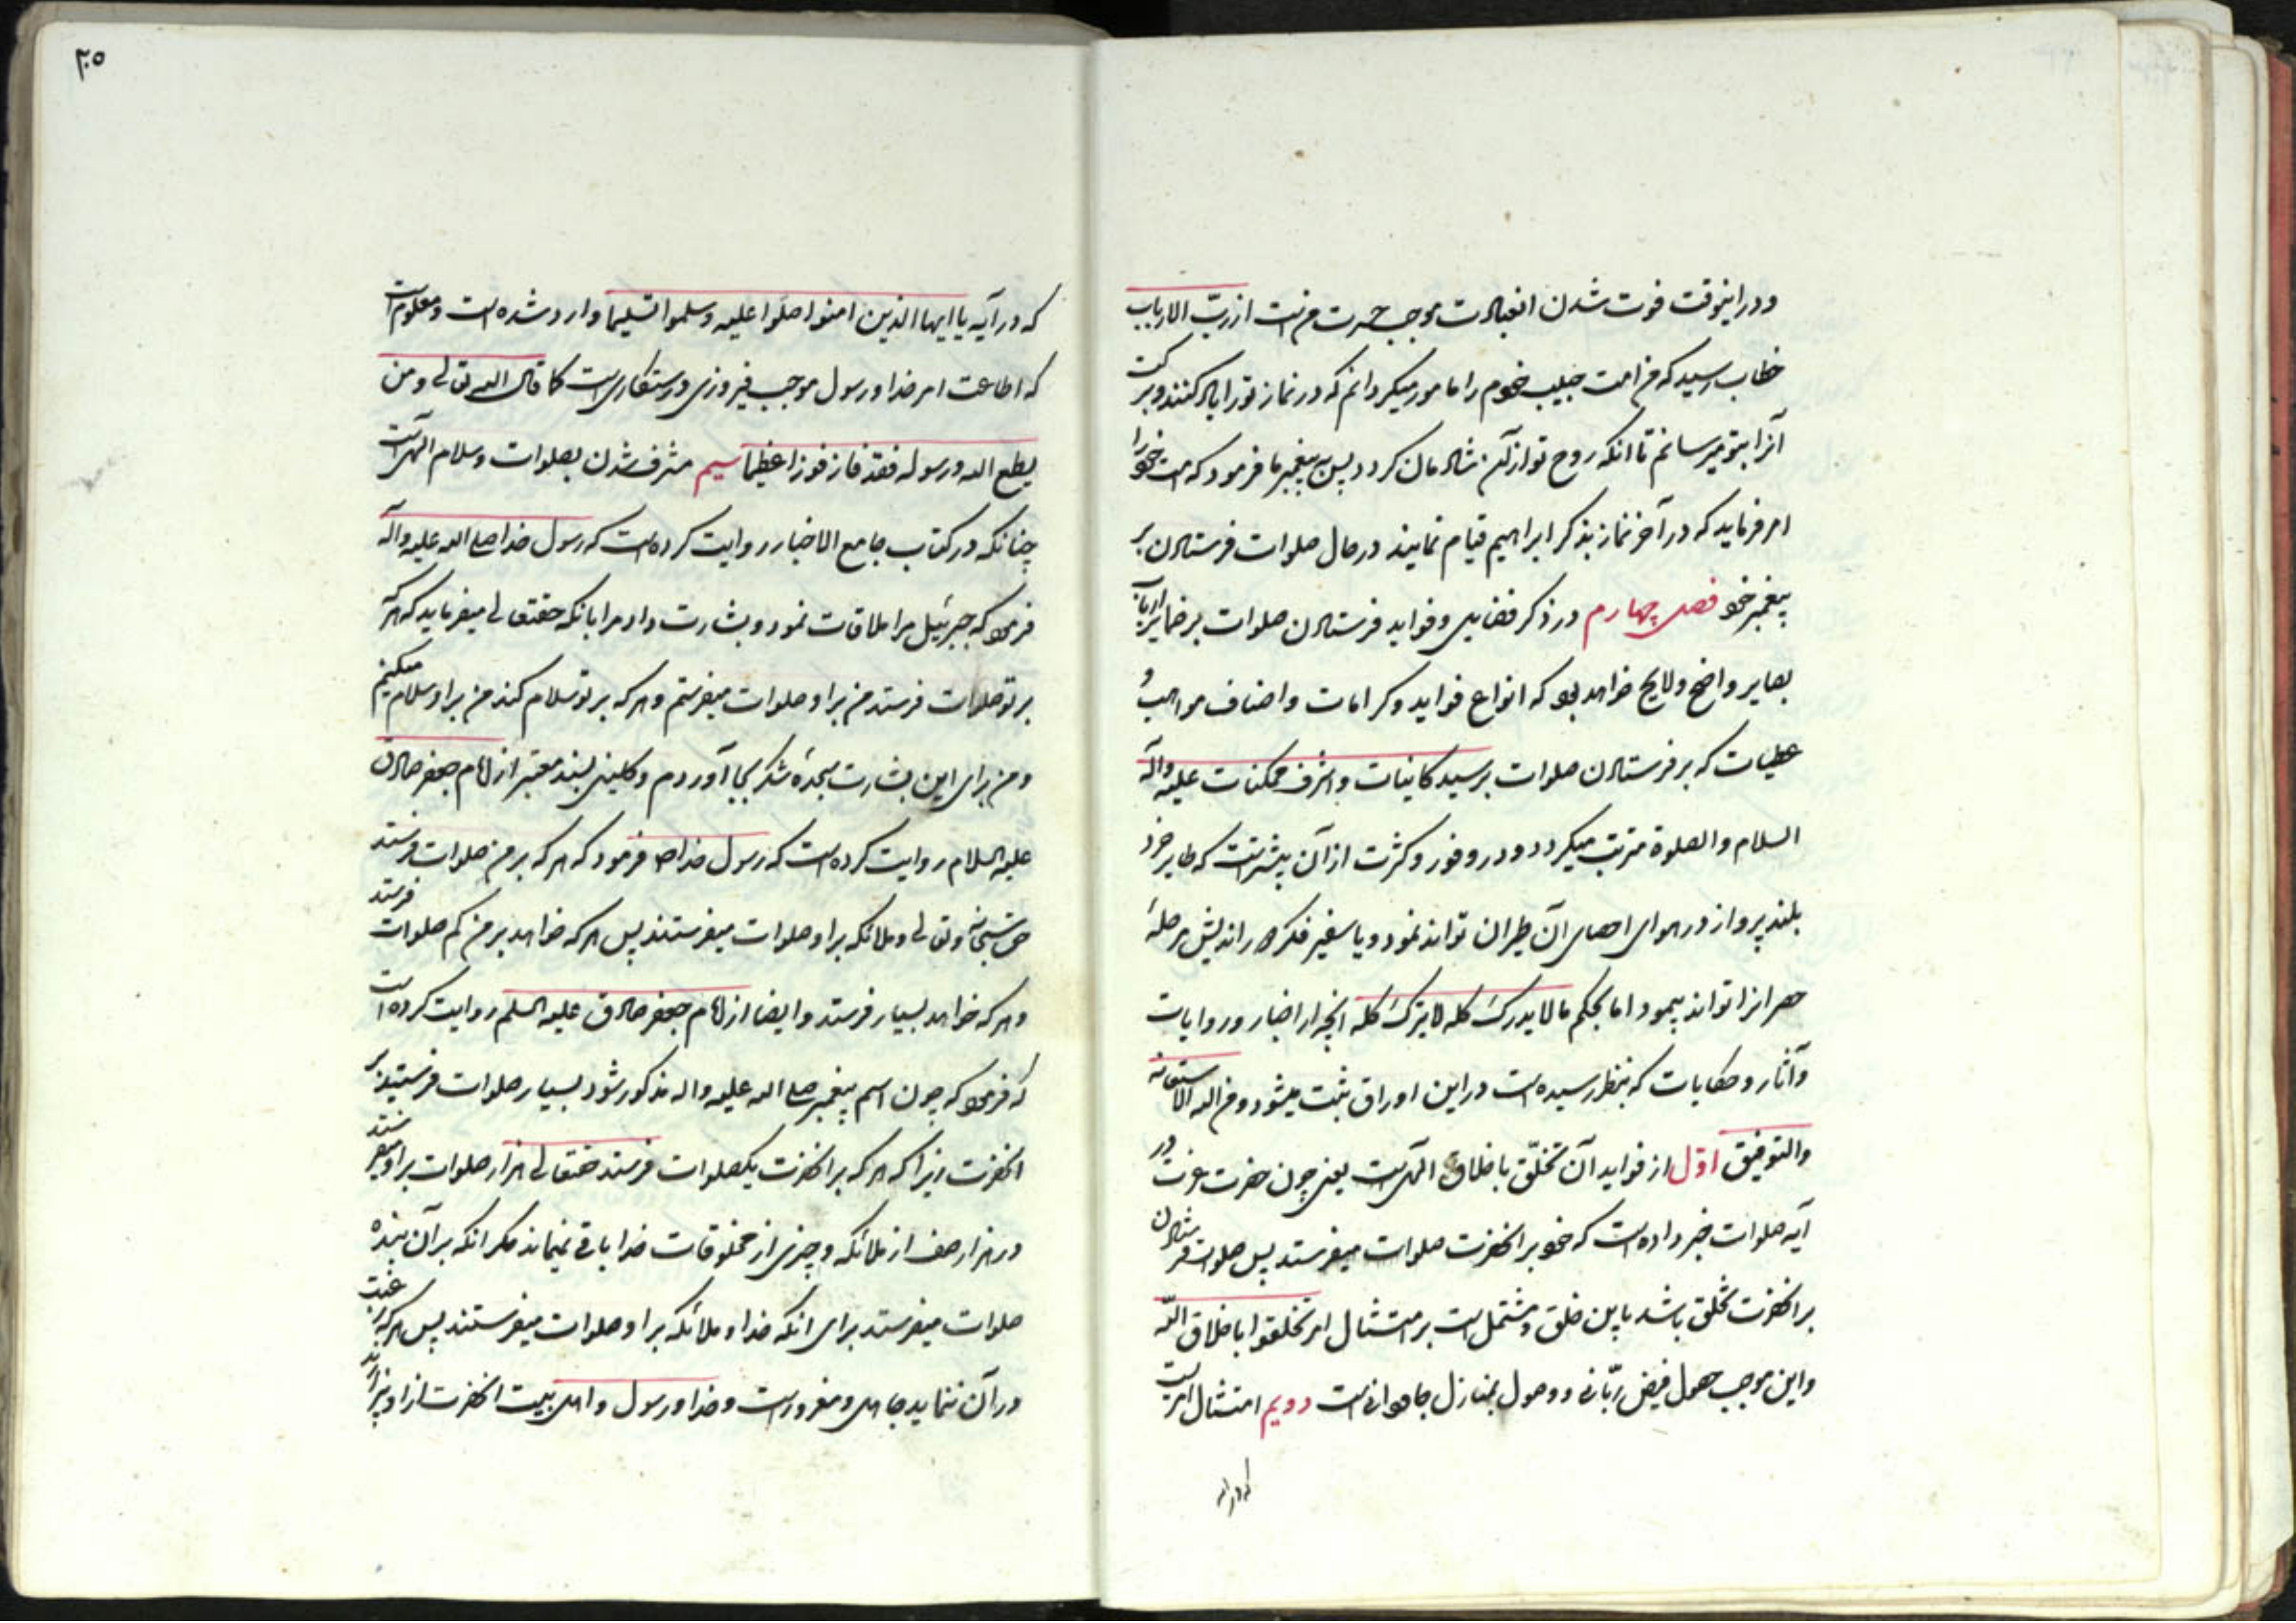 و در اینوقت فوت شدن انعبادت موجب حسرت منست از ربّ الارباب
خطاب رسید که من امت حبیب خود را مامور میکردانم که در نماز تو را یاد کنند و برکت
آنرا بتو میرسانم تا انکه روح تو از آن شادمان کردد پس به پیغمبر ما فرمود که امت خود را
امر فرماید که در آخر نماز بذکر ابراهیم قیام نمایند در حال صلوات فرستادن بر
پیغمبر خود فصل چهارم در ذکر فضایل و فواید فرستادن صلوات بر ضمایر ارباب
بصایر واضح و لایح خواهد بود که انواع فواید و کرامات و اصناف مواهب و
عطیات که بر فرستادن صلوات بر سید کاینات و اشرف ممکنات علیه واله
السلام والصلوة مترتب میکردد و در وفور و کثرت از آن بیشتر است که طایر خرد
بلند پرواز در هوای احصای آن طیران تواند نمود و یا سفیر فکر دور اندیش مرحلهٔ
حصر انرا تواند پیمود اما بحکم ما لا یدرک کله لا یترک کله انچه از اخبار و روایات
و آثار و حکایات که بنظر رسیده است در این اوراق ثبت میشود و من الله الاستعانه
والتوفیق اوّل از فواید آن تخلّق باخلاق الهی است یعنی چون حضرت عزت در
آیه صلوات خبر داده است که خود بر انحضرت صلوات میفرستد پس صلوات فرستادن
بر انحضرت تخلق باشد باین خلق و مشتمل است بر امتثال امر تخلقوا باخلاق اللّه
و این موجب حصول فیض ربّانی و وصول بمنازل جاودانی است دویم امتثال امریست
که در ایه
٣٠٥
که در آیه یا ایها الذین امنوا صلّوا علیه وسلموا تسلیما وارد شده است و معلوم است
که اطاعت امر خدا و رسول موجب فیروزی و رستکاری است کما قال الله تعالی و من
یطع الله ورسوله فقد فاز فوزا عظیما سیم مشرف شدن بصلوات و سلام الهی است
چنانکه در کتاب جامع الاخبار روایت کرده است که رسول خدا صلی الله علیه وآله
فرمود که جبرئیل مرا ملاقات نمود و بشارت داد مرا بانکه حقتعالی میفرماید که هرکه
بر تو صلوات فرستد من بر او صلوات میفرستم و هر که بر تو سلام کند من بر او سلام میکنم
و من برای این بشارت سجدهٔ شکر بجا آوردم و کلینی بسند معتبر از امام جعفر صادق
علیه السلام روایت کرده است که رسول خدا ص فرمود که هر که بر من صلوات فرستد
حق سبحانه وتعالی و ملائکه بر او صلوات میفرستند پس هر که خواهد بر من کم صلوات فرستد
و هر که خواهد بسیار فرستد و ایضا از امام جعفر صادق علیه السلم روایت کرده است
که فرمود که چون اسم پیغمبر صلی الله علیه واله مذکور شود بسیار صلوات فرستید بر
انحضرت زیرا که هر که بر انحضرت یکصلوات فرستد حقتعالی هزار صلوات بر او میفرستد
در هزار صف از ملائکه و چیزی از مخلوقات خدا باقی نمیماند مکر انکه بر آن بنده
صلوات میفرستد برای انکه خدا و ملائکه بر او صلوات میفرستند پس هر که رغبت
در آن ننماید جاهل و مغرور است و خدا و رسول و اهل بیت انحضرت از او بیزارند